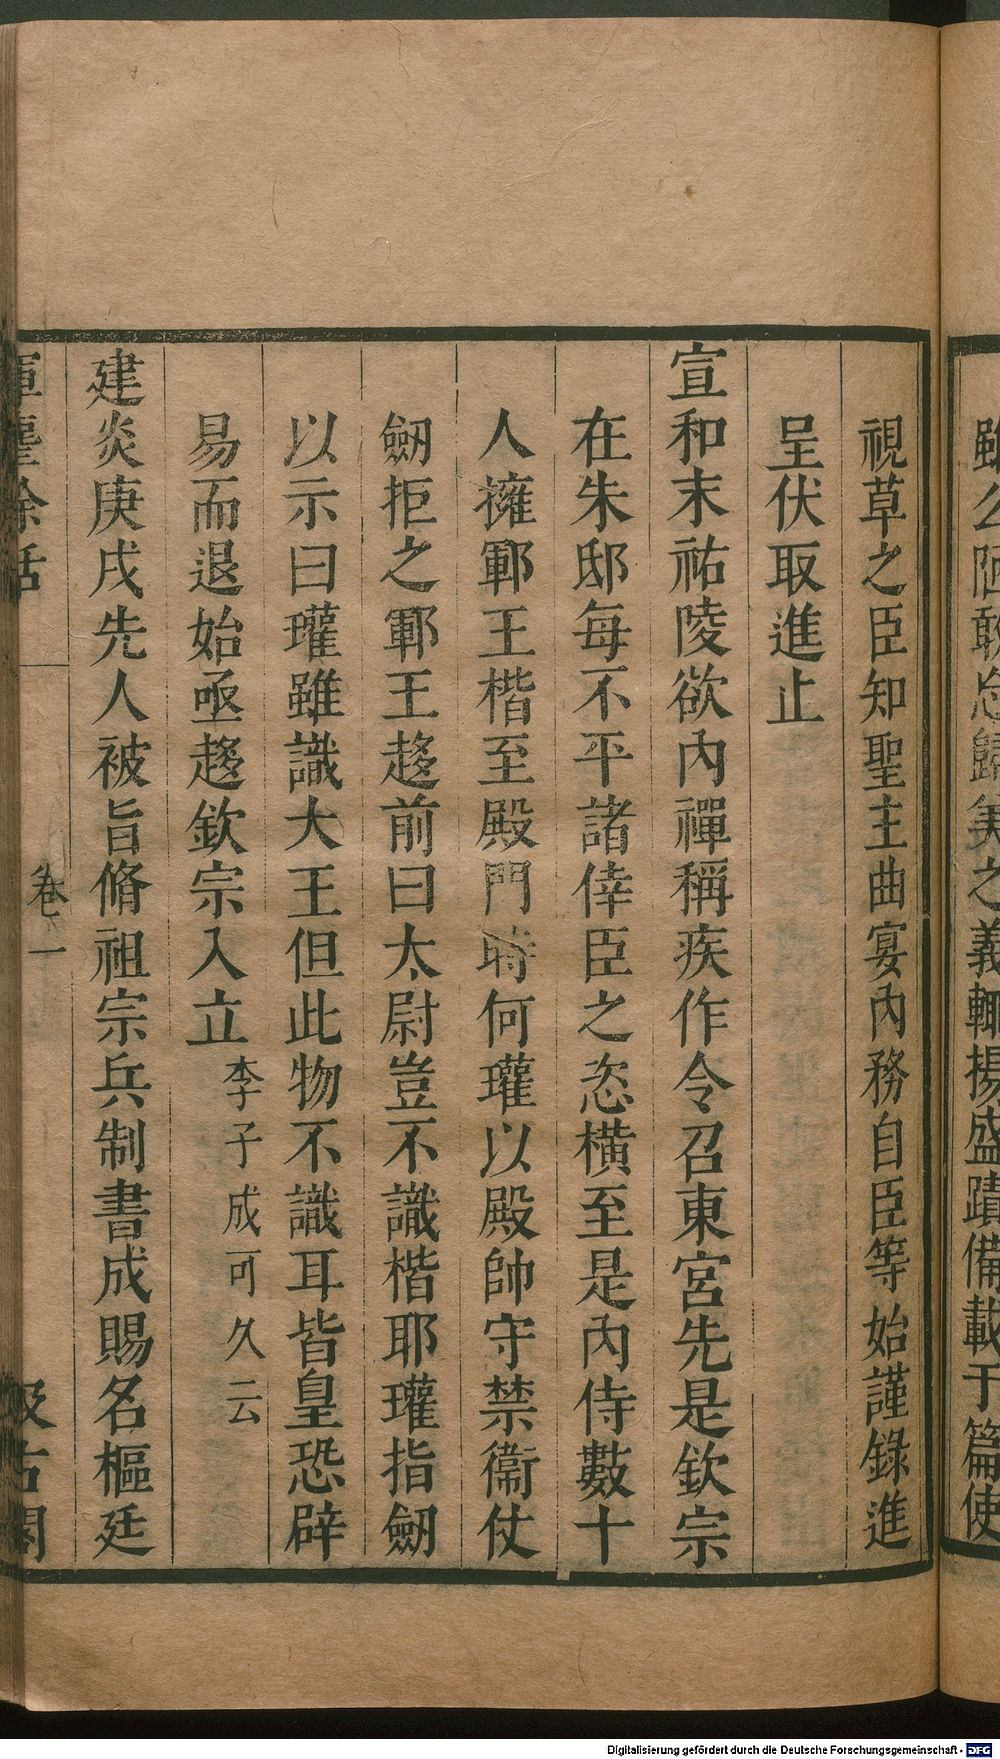 雖公陋敢忘歸美之義輒揚盛蹟備載于篇使
視草之臣知聖主曲宴內務自臣等始謹錄進
呈伏取進止
宣和末祐陵欲內禪稱疾作令召東宮先是欽宗
在朱邸每不平諸倖臣之恣橫至是內侍數十
人擁鄆王楷至殿門時何瓘以殿帥守禁衞仗
劒拒之鄆王趍前曰太尉豈不識楷耶瓘指劒
以示曰瓘雖識大王但此物不識耳皆皇恐辟
易而退始亟趍欽宗入立李子成可久云
建炎庚戌先人被旨脩祖宗兵制書成賜名樞廷
揮麈餘話
卷一
汲古閣
Digitalisierung gefördert durch die Deutsche Forschungsgemeinschaft - DFG